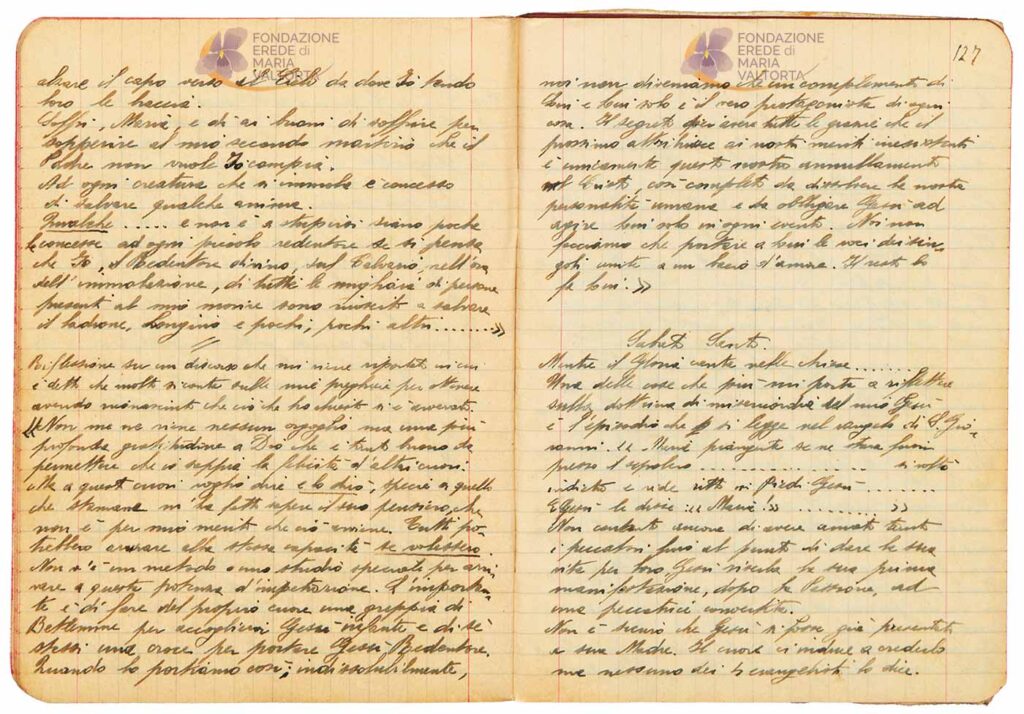 FONDAZIONE
EREDE di
MARIA
VALTORTA
alzare il capo verso il Cielo da dove Io tendo
loro le braccia.
Soffri, Maria, e di' ai buoni di soffrire per
sopperire al mio secondo martirio che il
Padre non vuole Io compia.
Ad ogni creatura che si immola è concesso
di salvare qualche anima.
Qualche ..... e non è a stupirsi siano poche
le concesse ad ogni piccolo redentore se si pensa
che Io, il Redentore divino, sul Calvario, nell'ora
dell'immolazione, di tutte le migliaia di persone
presenti al mio morire sono riuscito a salvare
il ladrone, Longino e pochi, pochi altri ........»
Riflessione su un discorso che mi viene riportato in cui
è detto che molti si conta sulle mie preghiere per ottenere
avendo riconosciuto che ciò che ho chiesto si è avverato.
«Non me ne viene nessun orgoglio ma una più
profonda gratitudine a Dio che è tanto buono da
permettere che io sappia la felicità d'altri cuori.
Ma a questi cuori voglio dire e lo dico, specie a quello
che stamane m'ha fatto sapere il suo pensiero, che
non è per mio merito che ciò avviene. Tutti po-
trebbero arrivare alla stessa capacità se volessero.
Non v'è un metodo o uno studio speciale per arri
vare a questa potenza d'impetrazione. L'importan-
te è di fare del proprio cuore una greppia di
Betlemme per accogliervi Gesù infante e di sé
stessi una croce per portare Gesù Redentore.
Quando lo portiamo così, indissolubilmente,
FONDAZIONE
EREDE di
MARIA
VALTORTA
127
noi non diveniamo che un complemento di
Lui e Lui solo è il vero protagonista di ogni
cosa. Il segreto di ricevere tutte le grazie che il
prossimo attribuisce ai nostri meriti inesistenti
è unicamente questo nostro annullamento
nel Cristo, così completo da dissolvere la nostra
personalità umana e da obbligare Gesù ad
agire Lui solo in ogni evento. Noi non
facciamo che portare a Lui le voci dei sin-
goli unite a un bacio d'amore. Il resto lo
fa Lui.»
Sabato Santo.
Mentre il Gloria canta nelle chiese........
Una delle cose che più mi porta a riflettere
sulla dottrina di misericordia del mio Gesù
è l'episodio che si legge nel vangelo di S. Gio-
vanni. «Maria piangente se ne stava fuori
presso il sepolcro .................. si voltò
indietro e vide ritto in piedi Gesù........
E Gesù le disse: «Maria!» ............»
Non contento ancora di avere amato tanto
i peccatori fino al punto di dare la sua
vita per loro, Gesù riserba la sua prima
manifestazione, dopo la Passione, ad
una peccatrice convertita.
Non è sicuro che Gesù si fosse già presentato
a sua Madre. Il cuore ci induce a crederlo
ma nessuno dei 4 evangelisti lo dice.